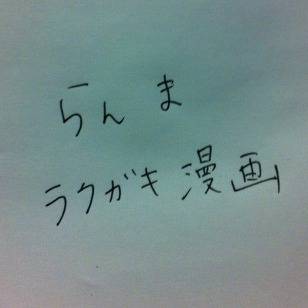 らんま
ラクガキ漫画